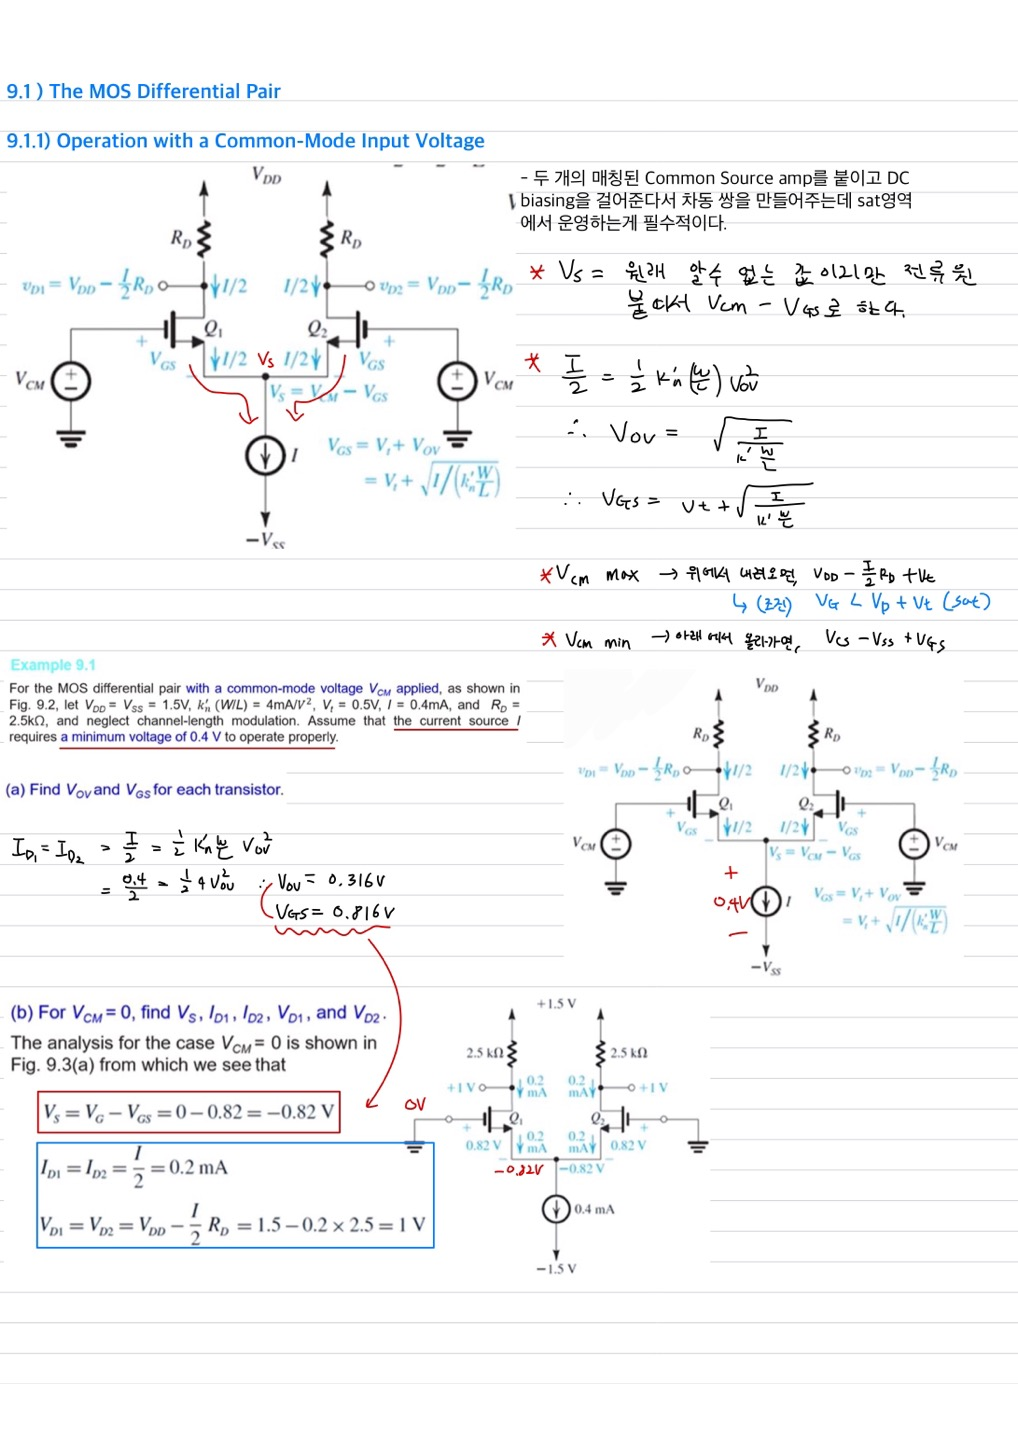 9.1 ) The MOS Differential Pair
9.1.1) Operation with a Common-Mode Input Voltage
V_DD
R_D R_D
v_D1 = V_DD − I/2 R_D I/2 I/2 v_D2 = V_DD − I/2 R_D
Q₁ Q₂
+ +
V_GS I/2 Vs I/2 V_GS
V_CM V_CM
V_S = V_CM − V_GS
I
V_GS = V_t + V_OV
= V_t + √(I/(k′_n W/L))
−V_SS
- 두 개의 매칭된 Common Source amp를 붙이고 DC
biasing을 걸어준다서 차동 쌍을 만들어주는데 sat영역
에서 운영하는게 필수적이다.
* Vs = 원래 알수 없는 값 이지만 전류원
붙여서 Vcm − VGS로 한다.
* I/2 = 1/2 k'n (W/L) Vov²
∴ Vov = √(I / (k' W/L))
∴ VGS = Vt + √(I / (k' W/L))
* Vcm max → 위에서 내려오면, VDD − I/2 RD + Vt
↳ (조건) VG < VD + Vt (sat)
* Vcm min → 아래에서 올라가면, VCS − VSS + VGS
Example 9.1
For the MOS differential pair with a common-mode voltage V_CM applied, as shown in
Fig. 9.2, let V_DD = V_SS = 1.5V, k′_n (W/L) = 4mA/V², V_t = 0.5V, I = 0.4mA, and R_D =
2.5kΩ, and neglect channel-length modulation. Assume that the current source I
requires a minimum voltage of 0.4 V to operate properly.
(a) Find V_OV and V_GS for each transistor.
ID1 = ID2 = I/2 = 1/2 k'n W/L Vov²
= 0.4/2 = 1/2 4 Vov² ∴ Vov = 0.316V
VGS = 0.816V
V_DD
R_D R_D
v_D1 = V_DD − I/2 R_D I/2 I/2 v_D2 = V_DD − I/2 R_D
Q₁ Q₂
+ +
V_GS I/2 I/2 V_GS
V_CM V_CM
V_S = V_CM − V_GS
+
0.4V I
−
V_GS = V_t + V_OV
= V_t + √(I/(k′_n W/L))
−V_SS
(b) For V_CM = 0, find V_S, I_D1, I_D2, V_D1, and V_D2.
The analysis for the case V_CM = 0 is shown in
Fig. 9.3(a) from which we see that
V_S = V_G − V_GS = 0 − 0.82 = −0.82 V
I_D1 = I_D2 = I/2 = 0.2 mA
V_D1 = V_D2 = V_DD − I/2 R_D = 1.5 − 0.2 × 2.5 = 1 V
+1.5 V
2.5 kΩ 2.5 kΩ
+1 V 0.2 mA 0.2 mA +1 V
0V
Q₁ Q₂
+ +
0.82 V 0.2 mA 0.2 mA 0.82 V
−0.82V −0.82 V
0.4 mA
−1.5 V